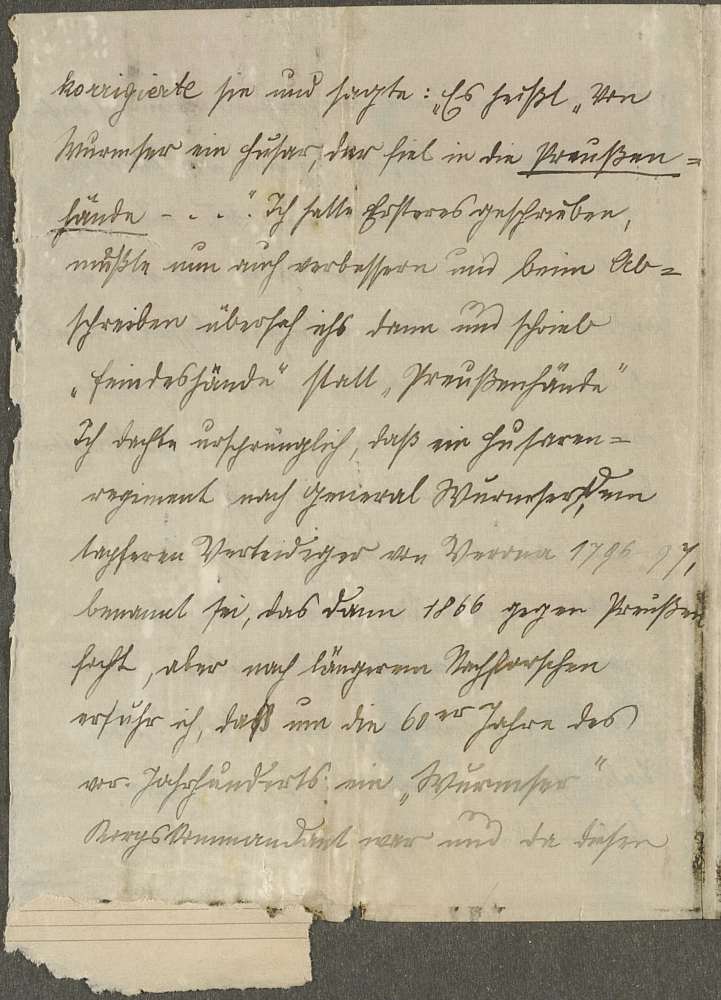 korrigierte sie und sagte: „Es heißt „Von
Wurmser ein Husar, der fiel in die Preußen=
hände - . . .“ Ich hatte Ersteres geschrieben,
mußte nun auch verbessern und beim Ab=
schreiben übersah ichs dann und schrieb
„Feindeshände“ statt „Preußenhände“
Ich dachte ursprünglich, daß ein Husaren=
regiment nach General Wurmser, dem
tapferen Verteidiger von Verona 1796 97,
benannt sei, das dann 1866 gegen Preußen
focht, aber nach längerem Nachforschen
erfuhr ich, daß um die 60er Jahre des
vor. Jahrhunderts ein „Wurmser“
Korpskommandant war und da diesen